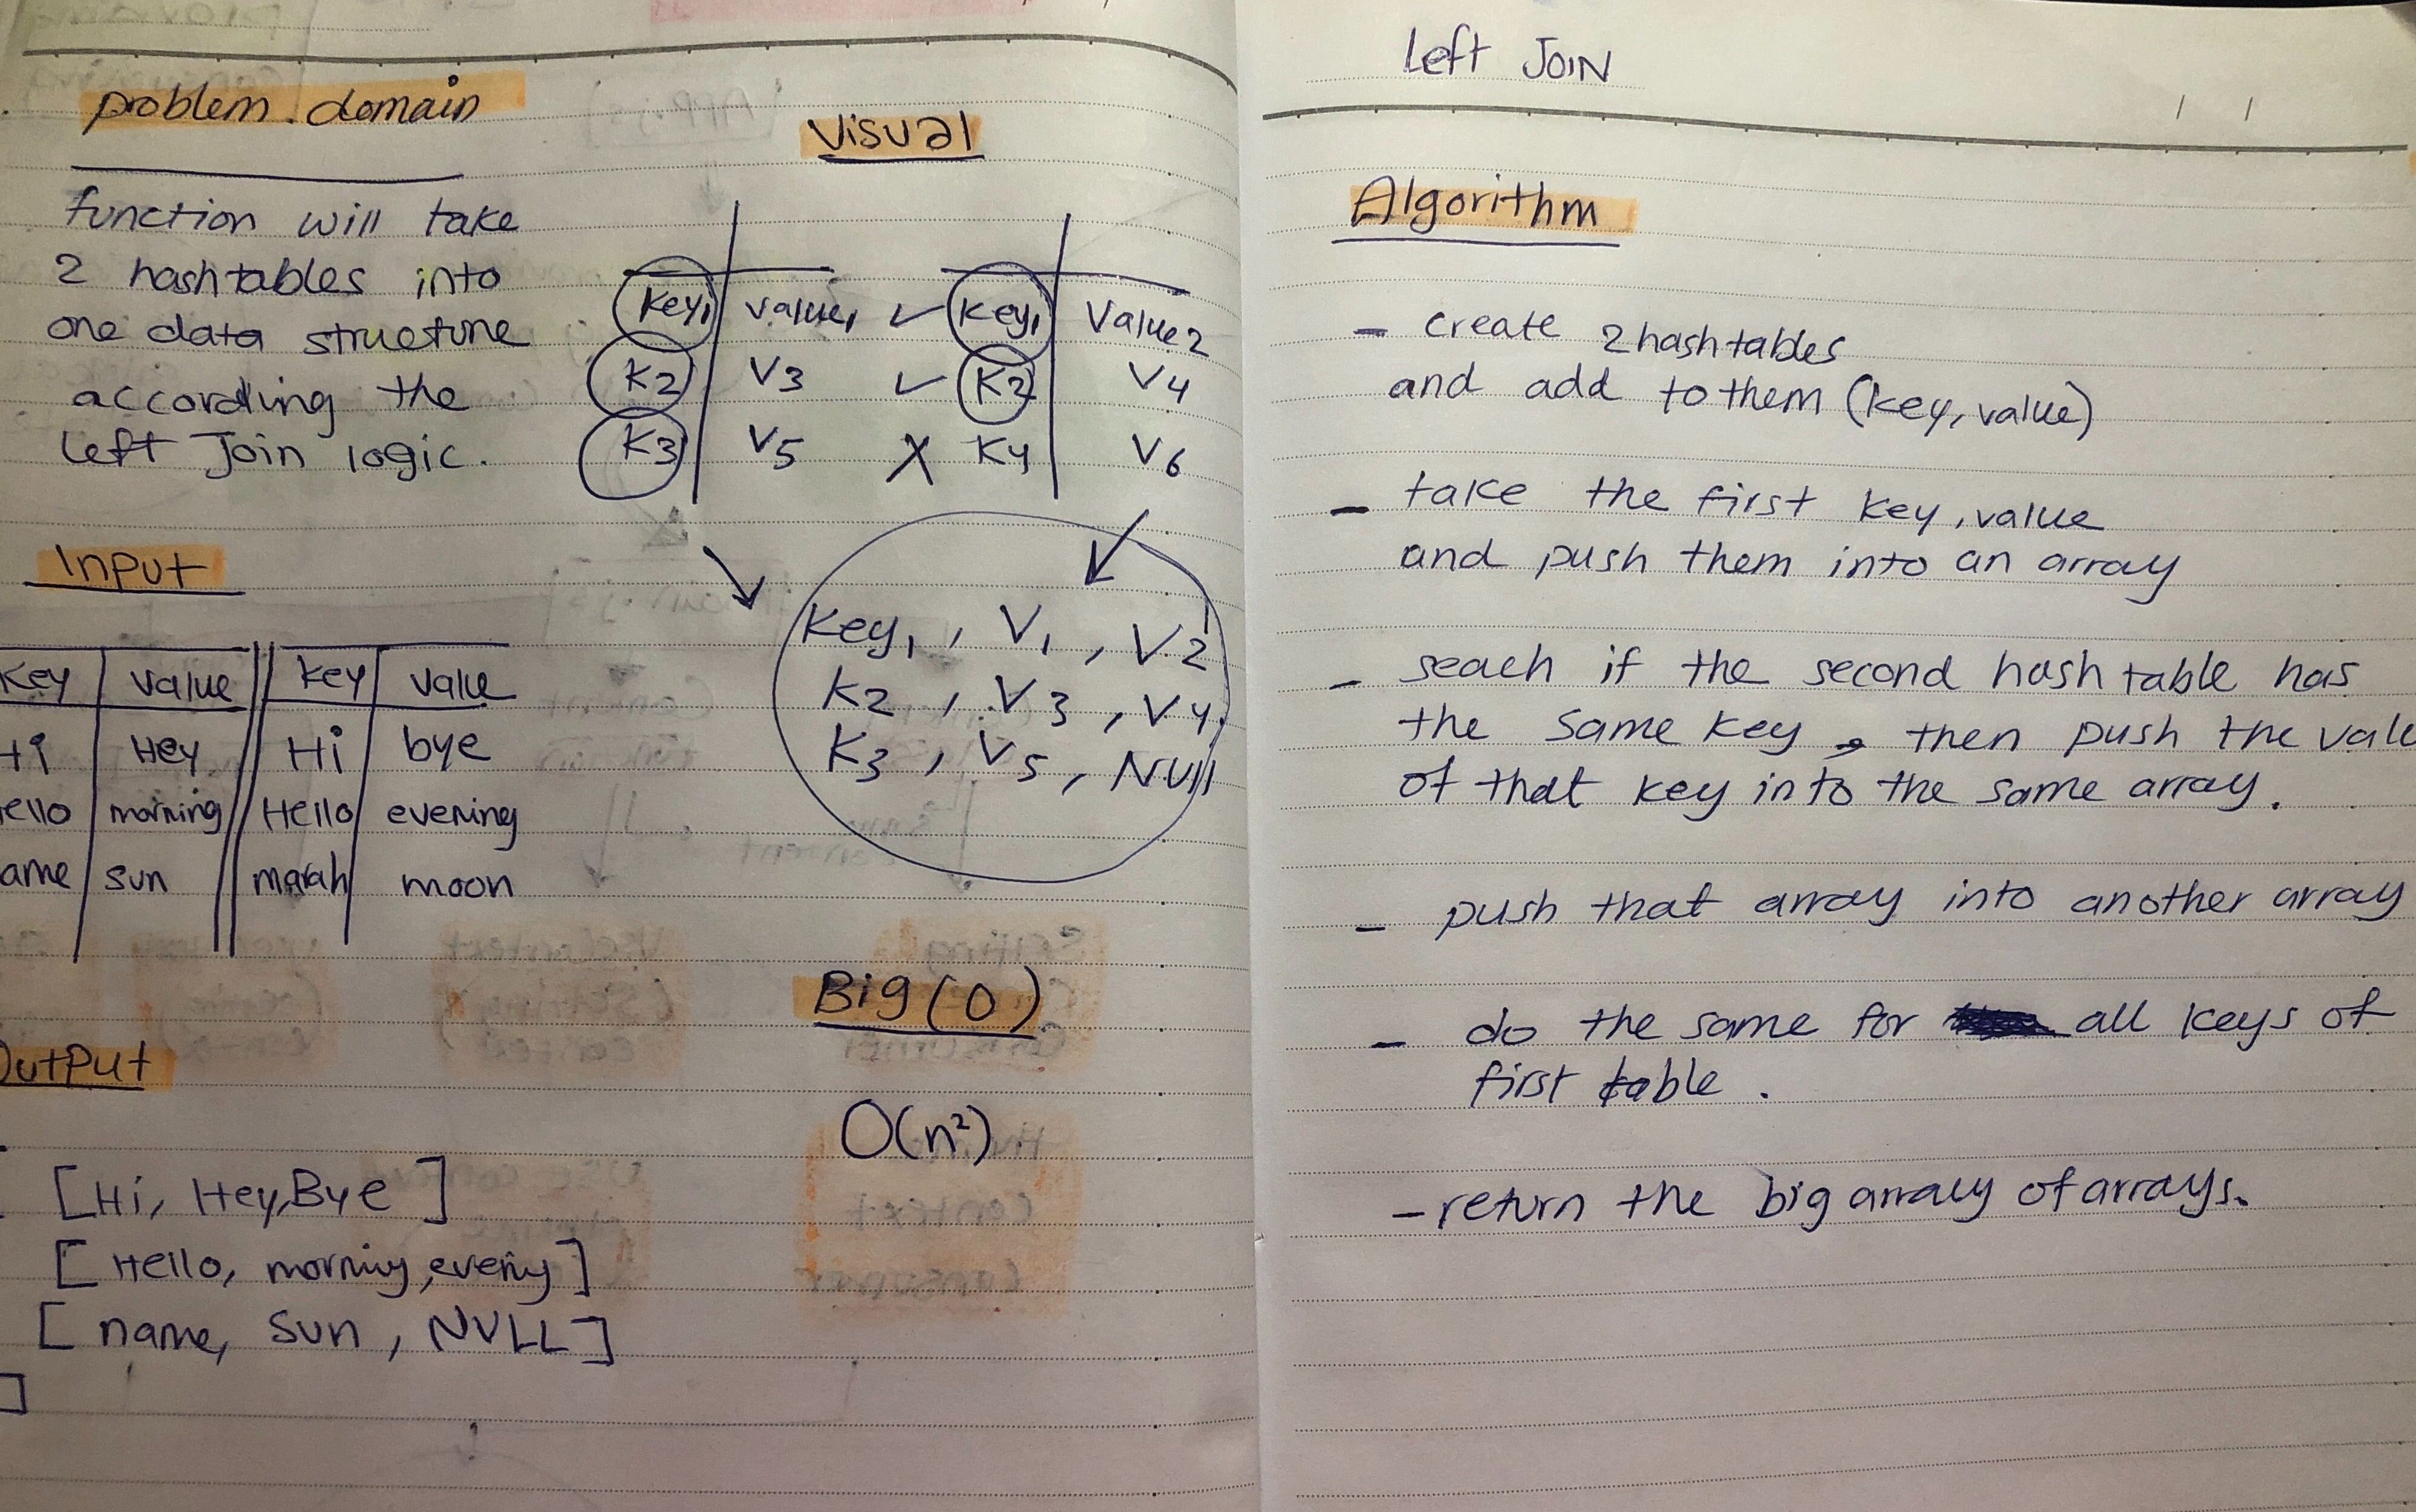 problem.domain
function will take
2 hashtables into
one data structure
according the
left Join logic.
Input
Key value key value
Hi Hey Hi bye
ello morning Hello evening
ame sun marah moon
Output
[Hi, Hey,Bye ]
[ Hello, morning,evening ]
[ name, Sun, NULL ]
]
Visual
key1 value1 ✓ key1 Value2
K2 V3 ✓ K2 V4
K3 V5 X K4 V6
Key1, V1, V2
K2, V3, V4
K3, V5, Null
Big(O)
O(n²)
Left JOIN
/ /
Algorithm
- create 2 hashtables
and add to them (key, value)
- take the first key, value
and push them into an array
- seach if the second hash table has
the same key, then push the valu
of that key into the same array.
- push that array into another array
- do the same for all keys of
first table.
- return the big array of arrays.